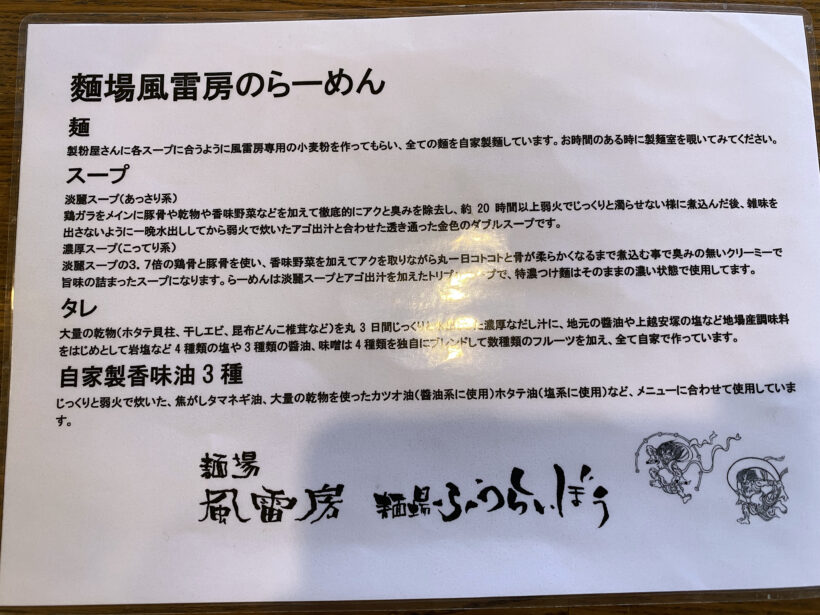 麵場風雷房のらーめん
麺
製粉屋さんに各スープに合うように風雷房専用の小麦粉を作ってもらい、全ての麺を自家製麺しています。お時間のある時に製麺室を覗いてみてください。
スープ
淡麗スープ(あっさり系)
鶏ガラをメインに豚骨や乾物や香味野菜などを加えて徹底的にアクと臭みを除去し、約 20 時間以上弱火でじっくりと濁らせない様に煮込んだ後、雑味を
出さないように一晩水出ししてから弱火で炊いたアゴ出汁と合わせた透き通った金色のダブルスープです。
濃厚スープ(こってり系)
淡麗スープの3．7倍の鶏骨と豚骨を使い、香味野菜を加えてアクを取りながら丸一日コトコトと骨が柔らかくなるまで煮込む事で臭みの無いクリーミーで
旨味の詰まったスープになります。らーめんは淡麗スープとアゴ出汁を加えたトリプルスープで、特濃つけ麺はそのままの濃い状態で使用してます。
タレ
大量の乾物(ホタテ貝柱、干しエビ、昆布どんこ椎茸など)を丸 3 日間じっくりと した濃厚なだし汁に、地元の醬油や上越安塚の塩など地場産調味料
をはじめとして岩塩など 4 種類の塩や 3 種類の醬油、味噌は 4 種類を独自にブレンドして数種類のフルーツを加え、全て自家で作っています。
自家製香味油 3 種
じっくりと弱火で炊いた、焦がしタマネギ油、大量の乾物を使ったカツオ油(醬油系に使用)ホタテ油(塩系に使用)など、メニューに合わせて使用していま
す。
麵場
風雷房 麵場ふうらいぼう